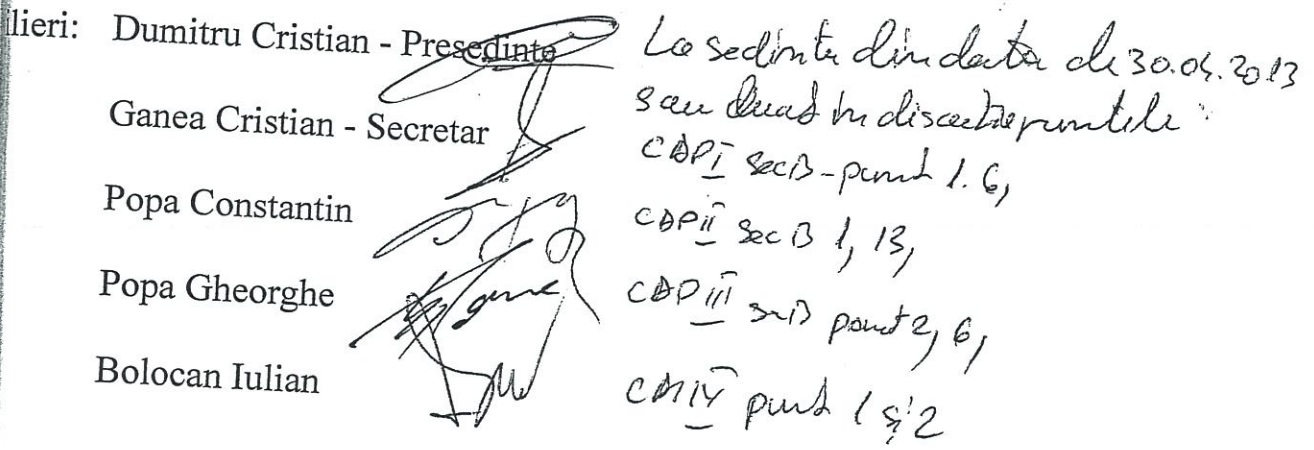 ilieri: Dumitru Cristian - Presedinte
Ganea Cristian - Secretar
Popa Constantin
Popa Gheorghe
Bolocan Iulian
La sedinta din data de 30.04.2013
sau luat in discutie puntele
CAP I Sec B - punct 1. 6,
CAP II Sec B 1, 13,
CAP III secB punct 2, 6,
CAP IV punct 1 și 2